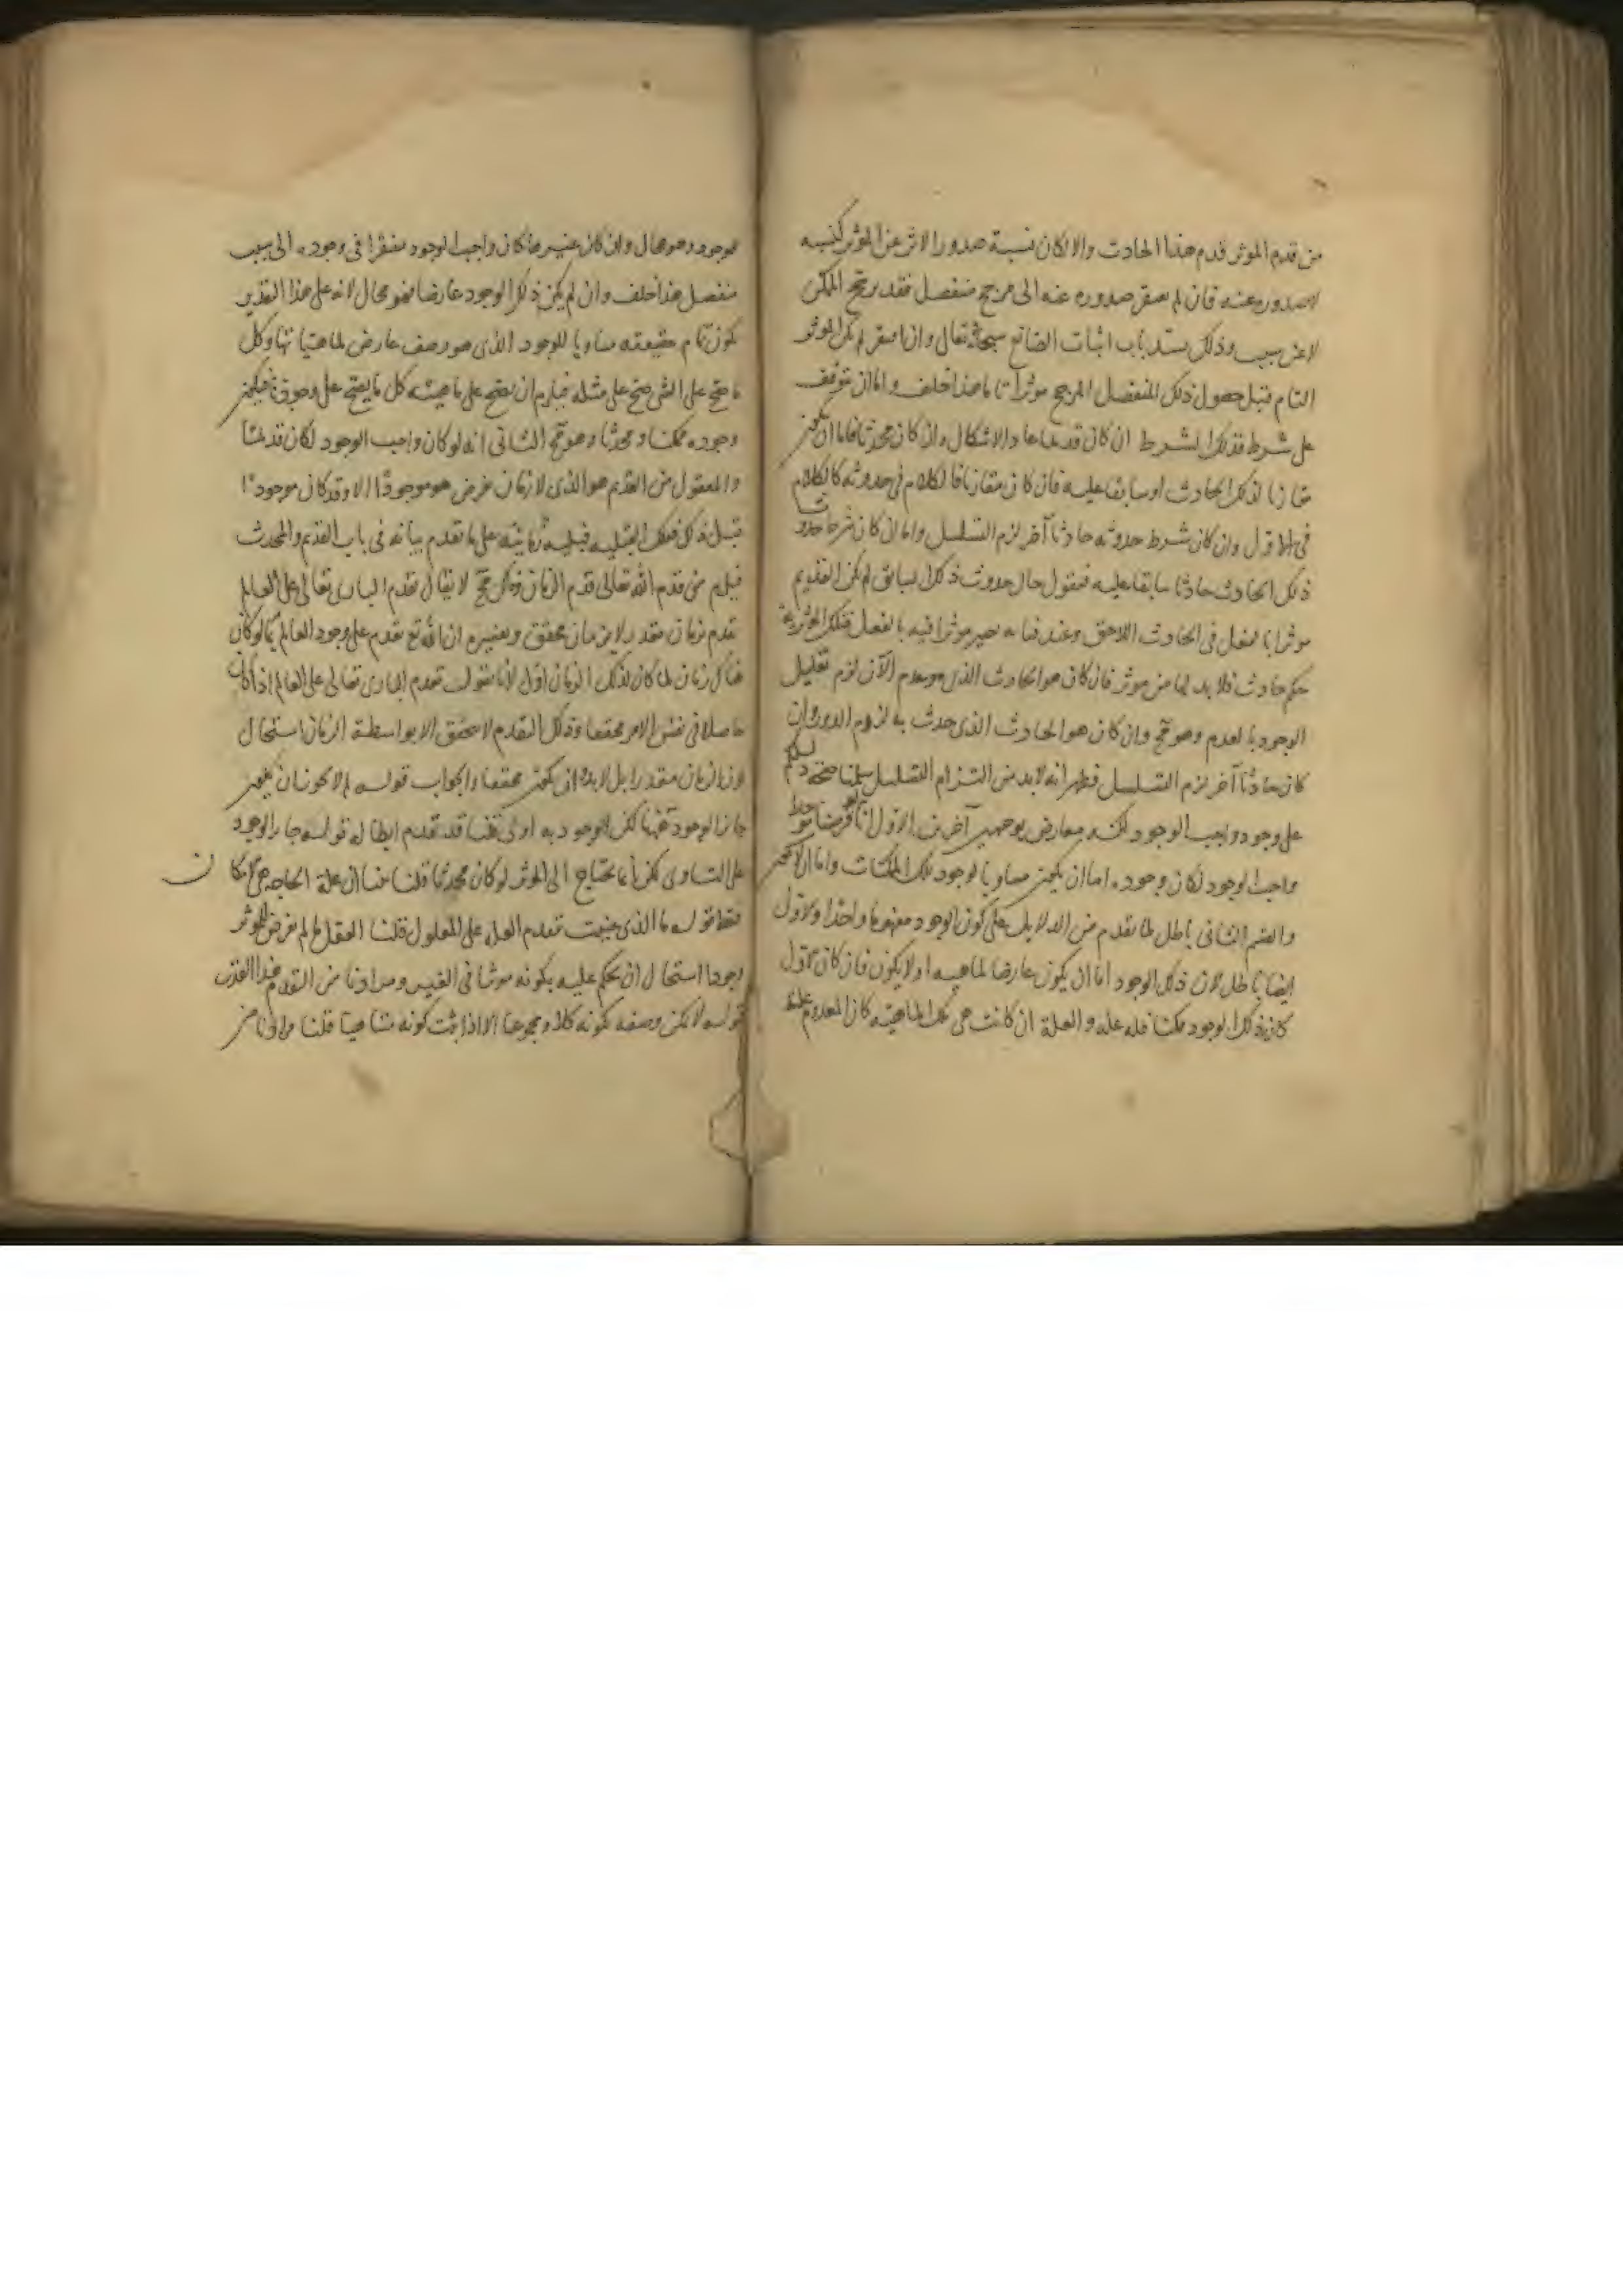 من قدم الموثر قدم هذا الحادث والا لكان نسبة صدور الاثر عن الموثر كنسبة
لا صدوره عنه فان لم يفتقر صدوره عنه الى مرجح منفصل فقد ترجح الممكن
لا عن سبب وذلك يسد باب اثبات الصانع سبحانه تعالى وان افتقر لم يكن الموثر
التام قبل حصول ذلك المنفصل المرجح موثرا تاما هذا خلف واما ان يتوقف
على شرط فذلك الشرط ان كان قديما عاد الاشكال وان كان محدثا فاما ان يكون
مقارنا لذلك الحادث او سابقا عليه فان كان مقارنا فالكلام في حدوثه كالكلام
في الاول وان كان شرط حدوثه حادثا آخر لزم التسلسل واما ان كان شرط حدوث
ذلك الحادث حادثا سابقا عليه فنقول حال حدوث ذلك السابق لم يكن القديم
موثرا بالفعل في الحادث اللاحق وعند فنائه يصير موثرا فيه بالفعل فتلك الموثرية
حكم حادث فلا بد لها من موثر فان كان هو الحادث الذي هو معدوم الآن لزم تعليل
الوجود بالعدم وهو مح وان كان هو الحادث الذي حدث به لزم الدور وان
كان حادثا آخر لزم التسلسل فظهر انه لا بد من التزام التسلسل سلمنا صحة دليلكم
على وجود واجب الوجود لكنه معارض بوجهين آخرين الاول انا لو فرضنا موجودا
واجب الوجود لكان وجوده اما ان يكون مساويا لوجود تلك الممكنات واما ان لا يكون
والقسم الثاني باطل لما تقدم من الدلايل على كون الوجود مفهوما واحدا والاول
ايضا باطل لان ذلك الوجود اما ان يكون عارضا لماهية او لا يكون فان كان الاول
كان ذلك الوجود ممكنا فله علة والعلة ان كانت هي تلك الماهية كان المعدوم علة
موجود وهو محال وان كان غيرها كان واجب الوجود مفتقرا في وجوده الى سبب
منفصل هذا خلف وان لم يكن ذلك الوجود عارضا فهو محال لانه على هذا التقدير
يكون تمام حقيقته مساويا للوجود الذي هو وصف عارض لماهياتنا وكل
ما صح على الشي صح على مثله فيلزم ان يصح على ماهيته كل ما يصح على وجودنا فيكون
وجوده ممكنا ومحدثا وهو مح الثاني انه لو كان واجب الوجود لكان قديما
والمعقول من القديم هو الذي لا زمان يفرض هو موجودا الا وقد كان موجودا
قبل ذلك فتلك القبلية قبلية زمانية على ما تقدم بيانه في باب القديم والمحدث
فيلزم من قدم الله تعالى قدم الزمان وذلك مح لا يقال تقدم البارى تعالى على العالم
تقدم بزمان مقدر لا بزمان محقق وتفسيره ان الله تع تقدم على وجود العالم بما لو كان
هناك زمان لما كان لذلك الزمان اول لانا نقول تقدم البارى تعالى على العالم اذا كان
حاصلا في نفس الامر محققا وذلك التقدم لا يتحقق الا بواسطة الزمان استحال
كون الزمان مقدرا بل لا بد وان يكون محققا والجواب قوله لم لا يجوز ان يصير
جائز الوجود لكن الوجود به اولى قلنا قد تقدم ابطاله قوله جائز الوجود
على التساوى لكن انما يحتاج الى الموثر لو كان محدثا قلنا بينا ان علة الحاجة هي الامكان
فقط قوله ما الذي عنيت بتقدم العلة على المعلول قلنا العقل ما لم يفرض للموثر
وجودا استحال ان يحكم عليه بكونه موثرا في الغير ومرادنا من التقدم هذا القدر
قوله لا يمكن وصفه بكونه كلا ومجموعا الا اذا ثبت كونه متناهيا قلنا مرادنا من